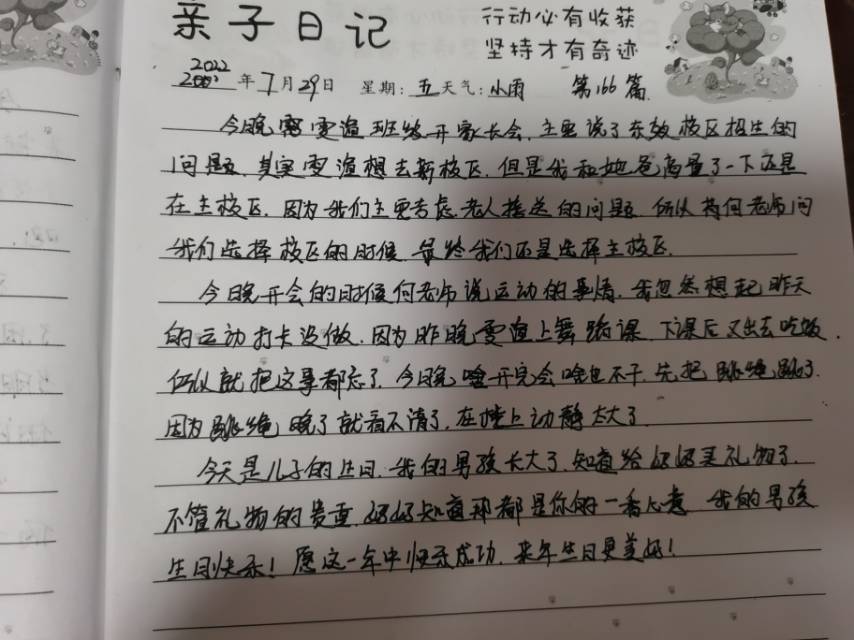 亲子日记
行动必有收获
坚持才有奇迹
2022年7月29日 星期:五 天气:小雨 第166篇
今晚雯渲班级开家长会,主要说了东效校区招生的
问题,其实雯渲想去新校区,但是我和她爸商量了一下还是
在主校区,因为我们主要考虑老人接送的问题,所以当何老师问
我们选择校区的时候,最终我们还是选择主校区.
今晚开会的时候何老师说运动的事情,我忽然想起昨天
的运动打卡没做,因为昨晚雯渲上舞蹈课,下课后又出去吃饭,
所以就把这事都忘了,今晚开完会啥也不干,先把跳绳跳了.
因为跳绳晚了就看不清了,在楼上动静太大了.
今天是儿子的生日,我的男孩长大了,知道给妈妈买礼物了,
不管礼物的贵重,妈妈知道那都是你的一番心意,我的男孩
生日快乐!愿这一年中快乐成功,来年生日更美好!